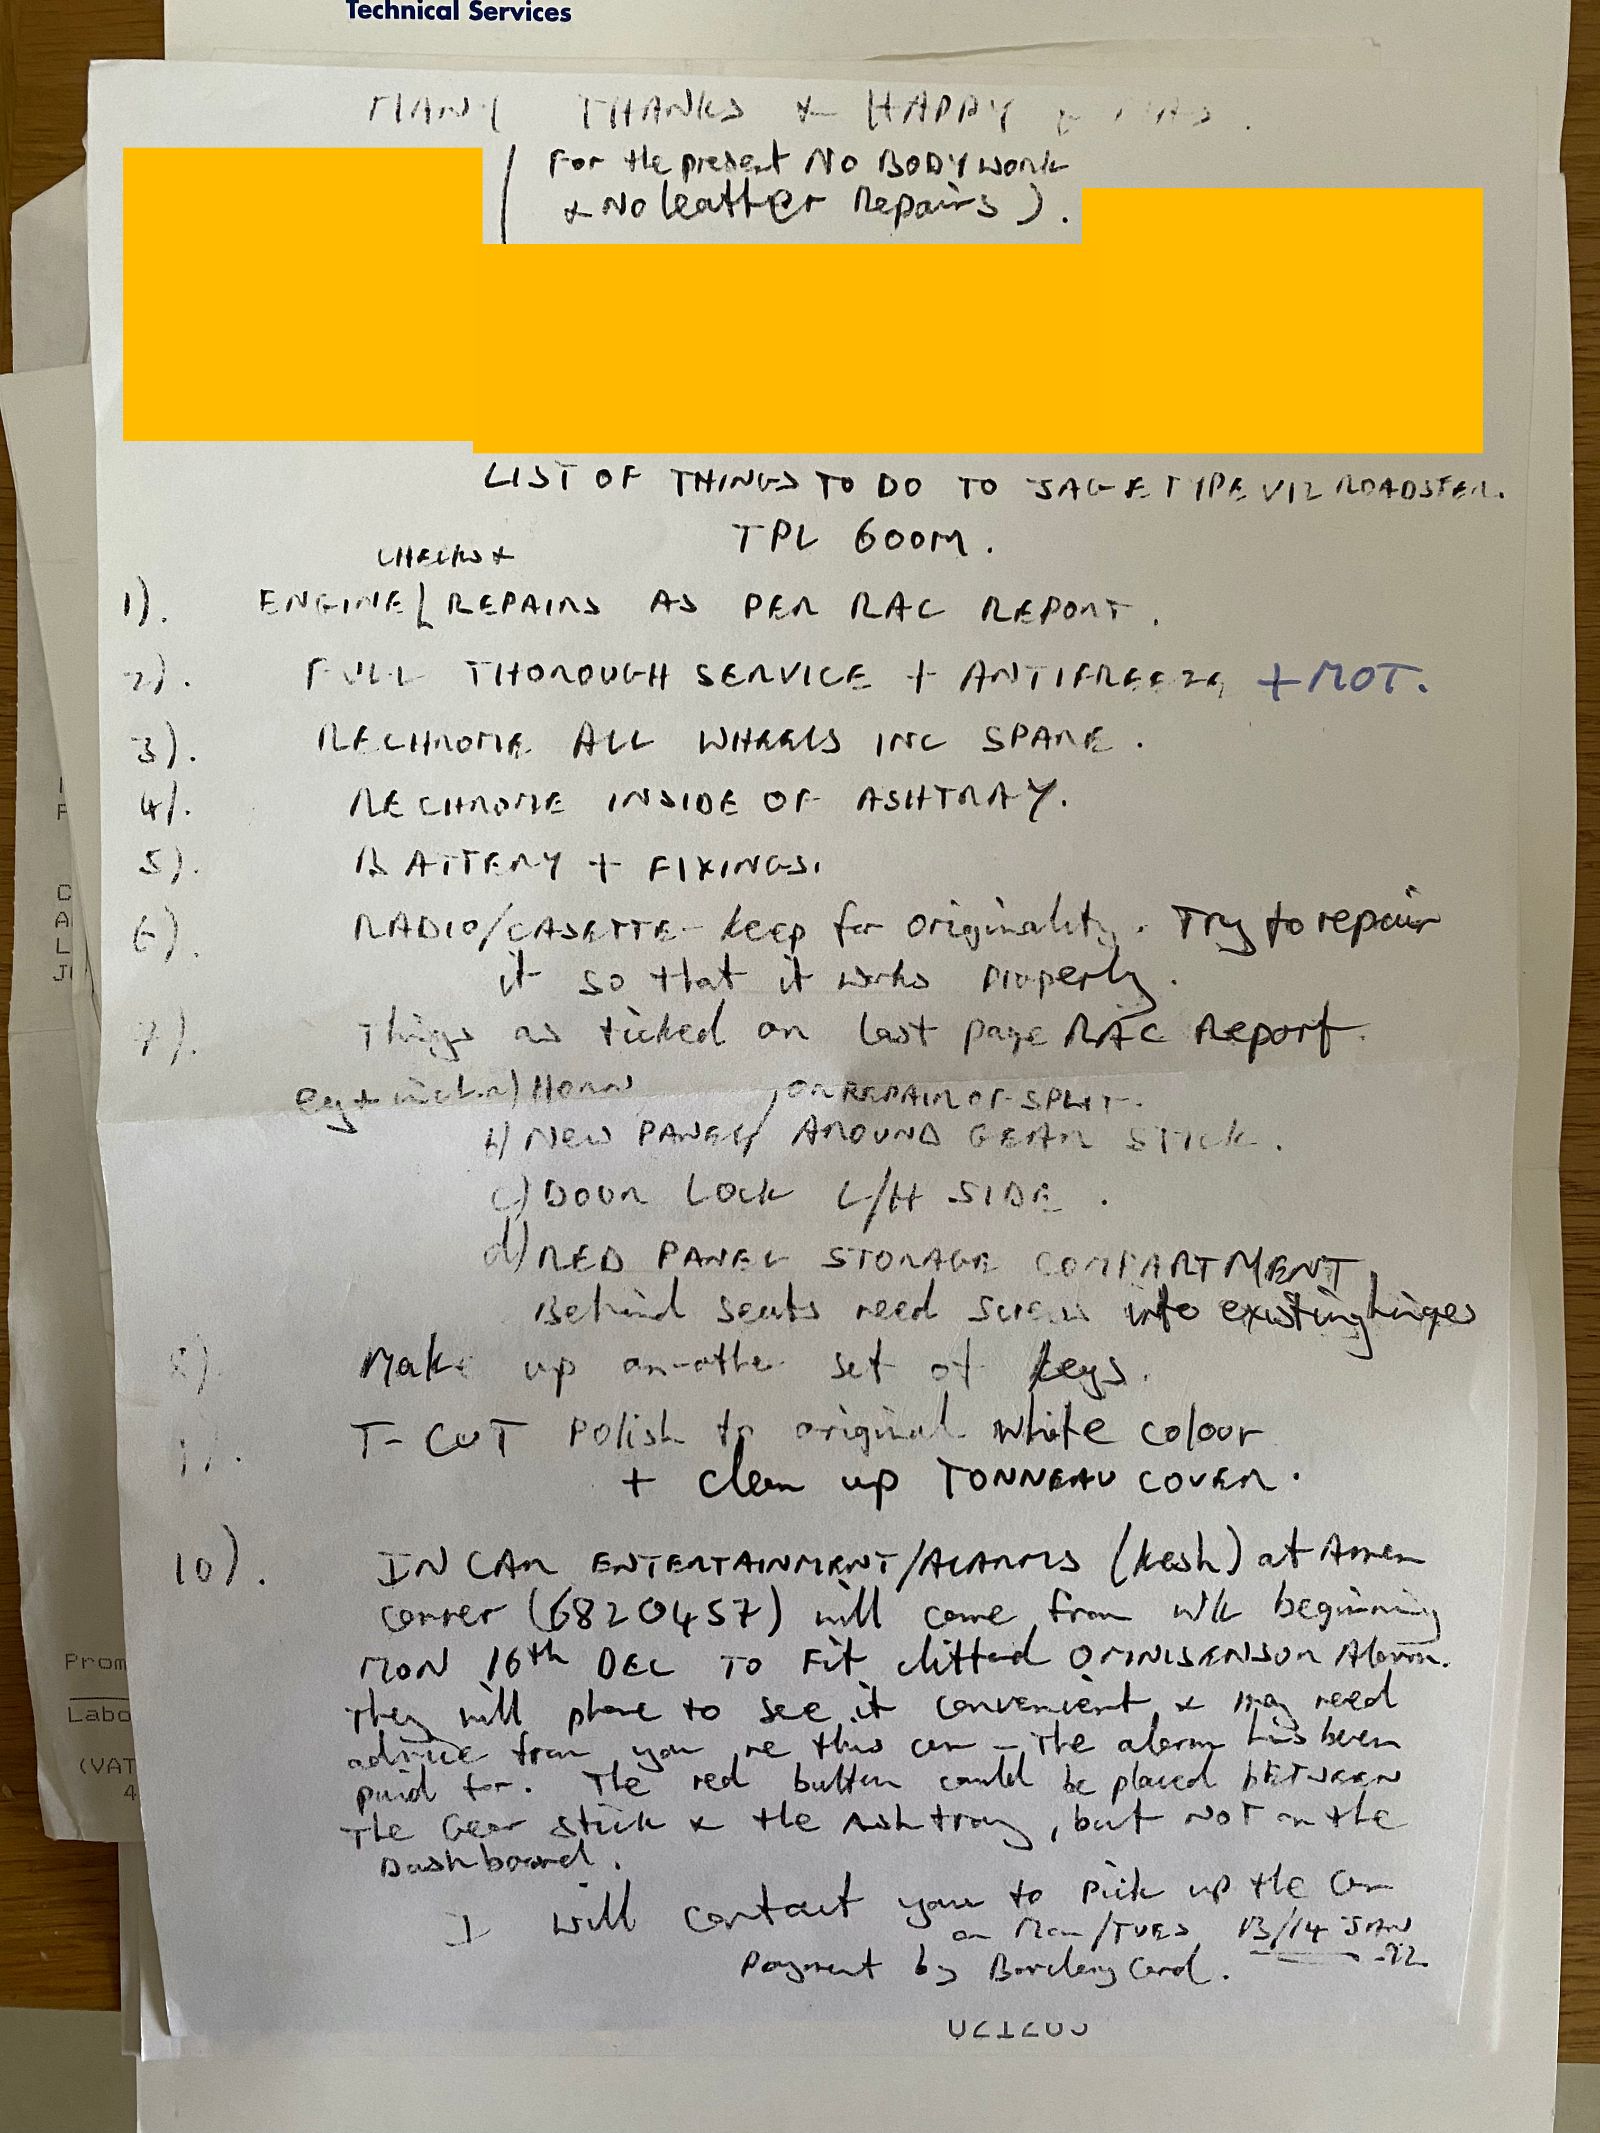 Technical Services
MANY THANKS & HAPPY
(For the present NO BODYWORK
& No leather Repairs).
LIST OF THINGS TO DO TO JAG E TYPE V12 ROADSTER.
TPL 600M.
CHECKS &
1). ENGINE/REPAIRS AS PER RAC REPORT.
2). FULL THOROUGH SERVICE + ANTIFREEZE + MOT.
3). RECHROME ALL WHEELS INC SPARE.
4). RECHROME INSIDE OF ASHTRAY.
5). BATTERY + FIXINGS.
6). RADIO/CASETTE - keep for originality. Try to repair
it so that it works properly.
7). Things as ticked on last page RAC Report.
Horn
OR REPAIR OF SPLIT.
b) New PANEL AROUND GEAR STICK.
c) DOOR LOCK L/H SIDE.
d) RED PANEL STORAGE COMPARTMENT
Behind seats need screws into existing hinges
8). Make up an-other set of keys.
9). T-CUT polish to original white colour
+ clean up TONNEAU COVER.
10). IN CAR ENTERTAINMENT/ALARMS (Kesh) at
corner (6820457) will come from wk beginning
MON 16th DEC TO Fit OMNISENSOR Alarm.
They will phone to see it convenient & may need
advice from you re this car - The alarm has been
paid for. The red button could be placed BETWEEN
The Gear stick & the Ashtray, but NOT on the
Dashboard.
I will contact you to pick up the car
on Mon/TUES 13/14 JAN
92.
Payment by Barclay Card.
Prom
Labo
(VAT
4